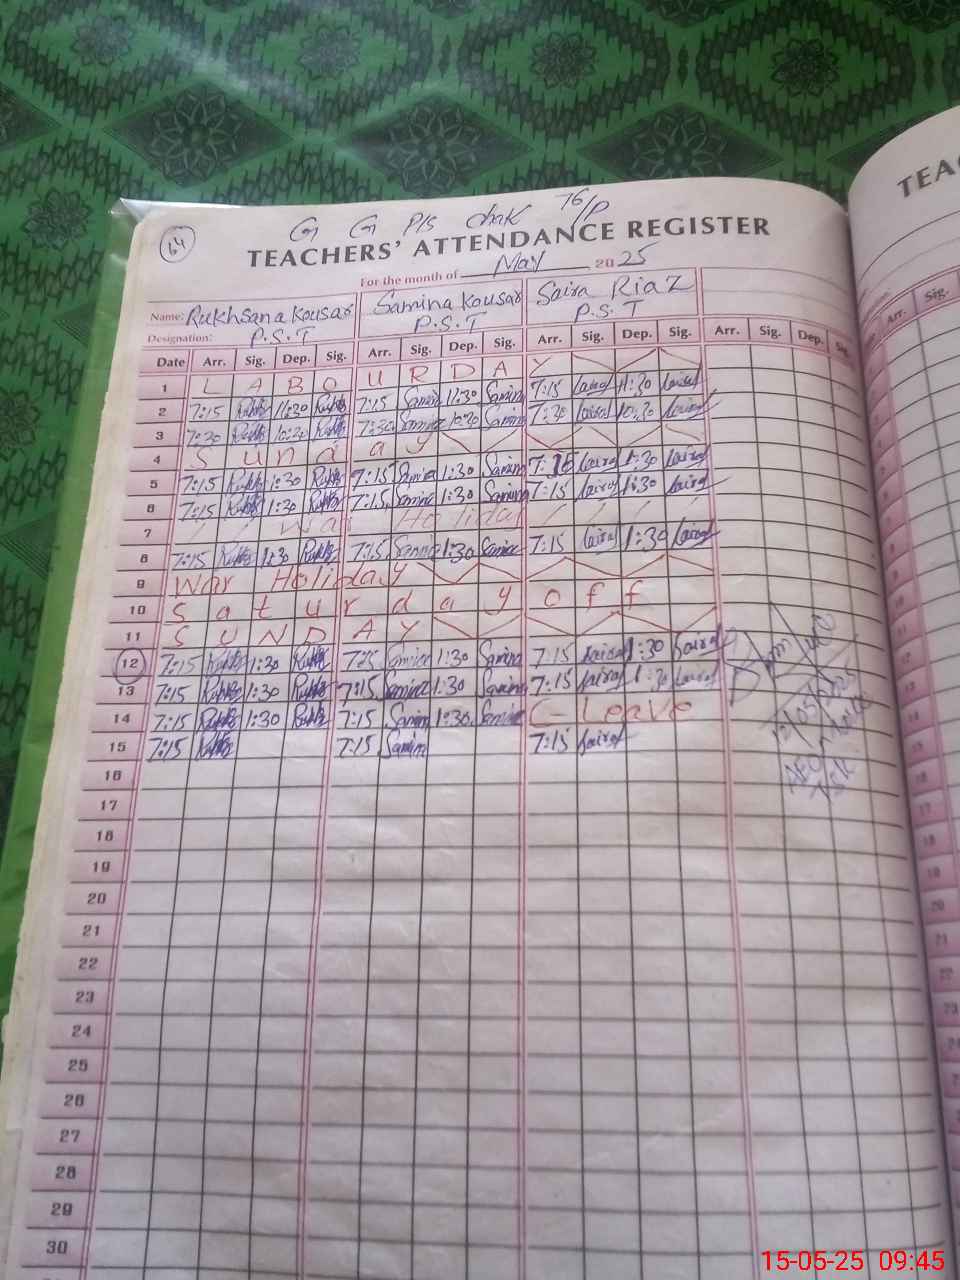 64
G G P/S chak 76/P
TEACHERS' ATTENDANCE REGISTER
For the month of May 2025
Name: Rukhsana Kousar Samina Kousar Saira Riaz
Designation: P.S.T P.S.T P.S.T
Date Arr. Sig. Dep. Sig. Arr. Sig. Dep. Sig. Arr. Sig. Dep. Sig. Arr. Sig. Dep. Sig.
1 L A B O U R D A Y
2 7:15 11:30 7:15 Samina 11:30 Samina 7:15 11:30
3 7:30 10:30 7:30 Samina 10:30 Samina 7:30 10:30
4 S u n d a y
5 7:15 1:30 7:15 Samina 1:30 Samina 7:15 1:30
6 7:15 1:30 7:15 Samina 1:30 Samina 7:15 1:30
7 War Holiday
8 7:15 1:30 7:15 Samina 1:30 Samina 7:15 1:30
9 War Holiday
10 S a t u r d a y o f f
11 S U N D A Y
12 7:15 1:30 Samina 1:30 Samina 7:15 1:30
13 7:15 1:30 7:15 Samina 1:30 Samina 7:15 1:30
14 7:15 1:30 7:15 Samina 1:30 Samina C-Leave
15 7:15 7:15 Samina 7:15
16
17
18
19
20
21
22
23
24
25
26
27
28
29
30
12/05/2025
AEO
TEA
Arr. Sig.
15-05-25 09:45